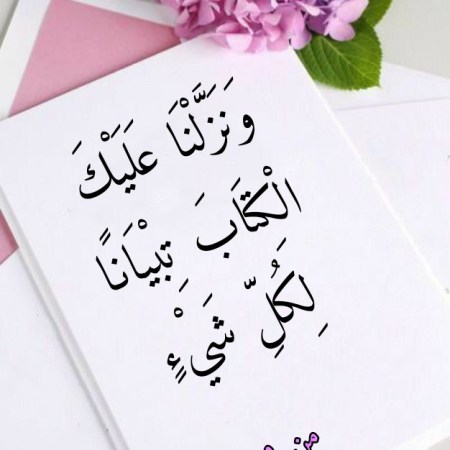 وَنَزَّلْنَا عَلَيْكَ
الْكتَابَ تِبيْانًا
لِكُلِّ شَيْءٍ